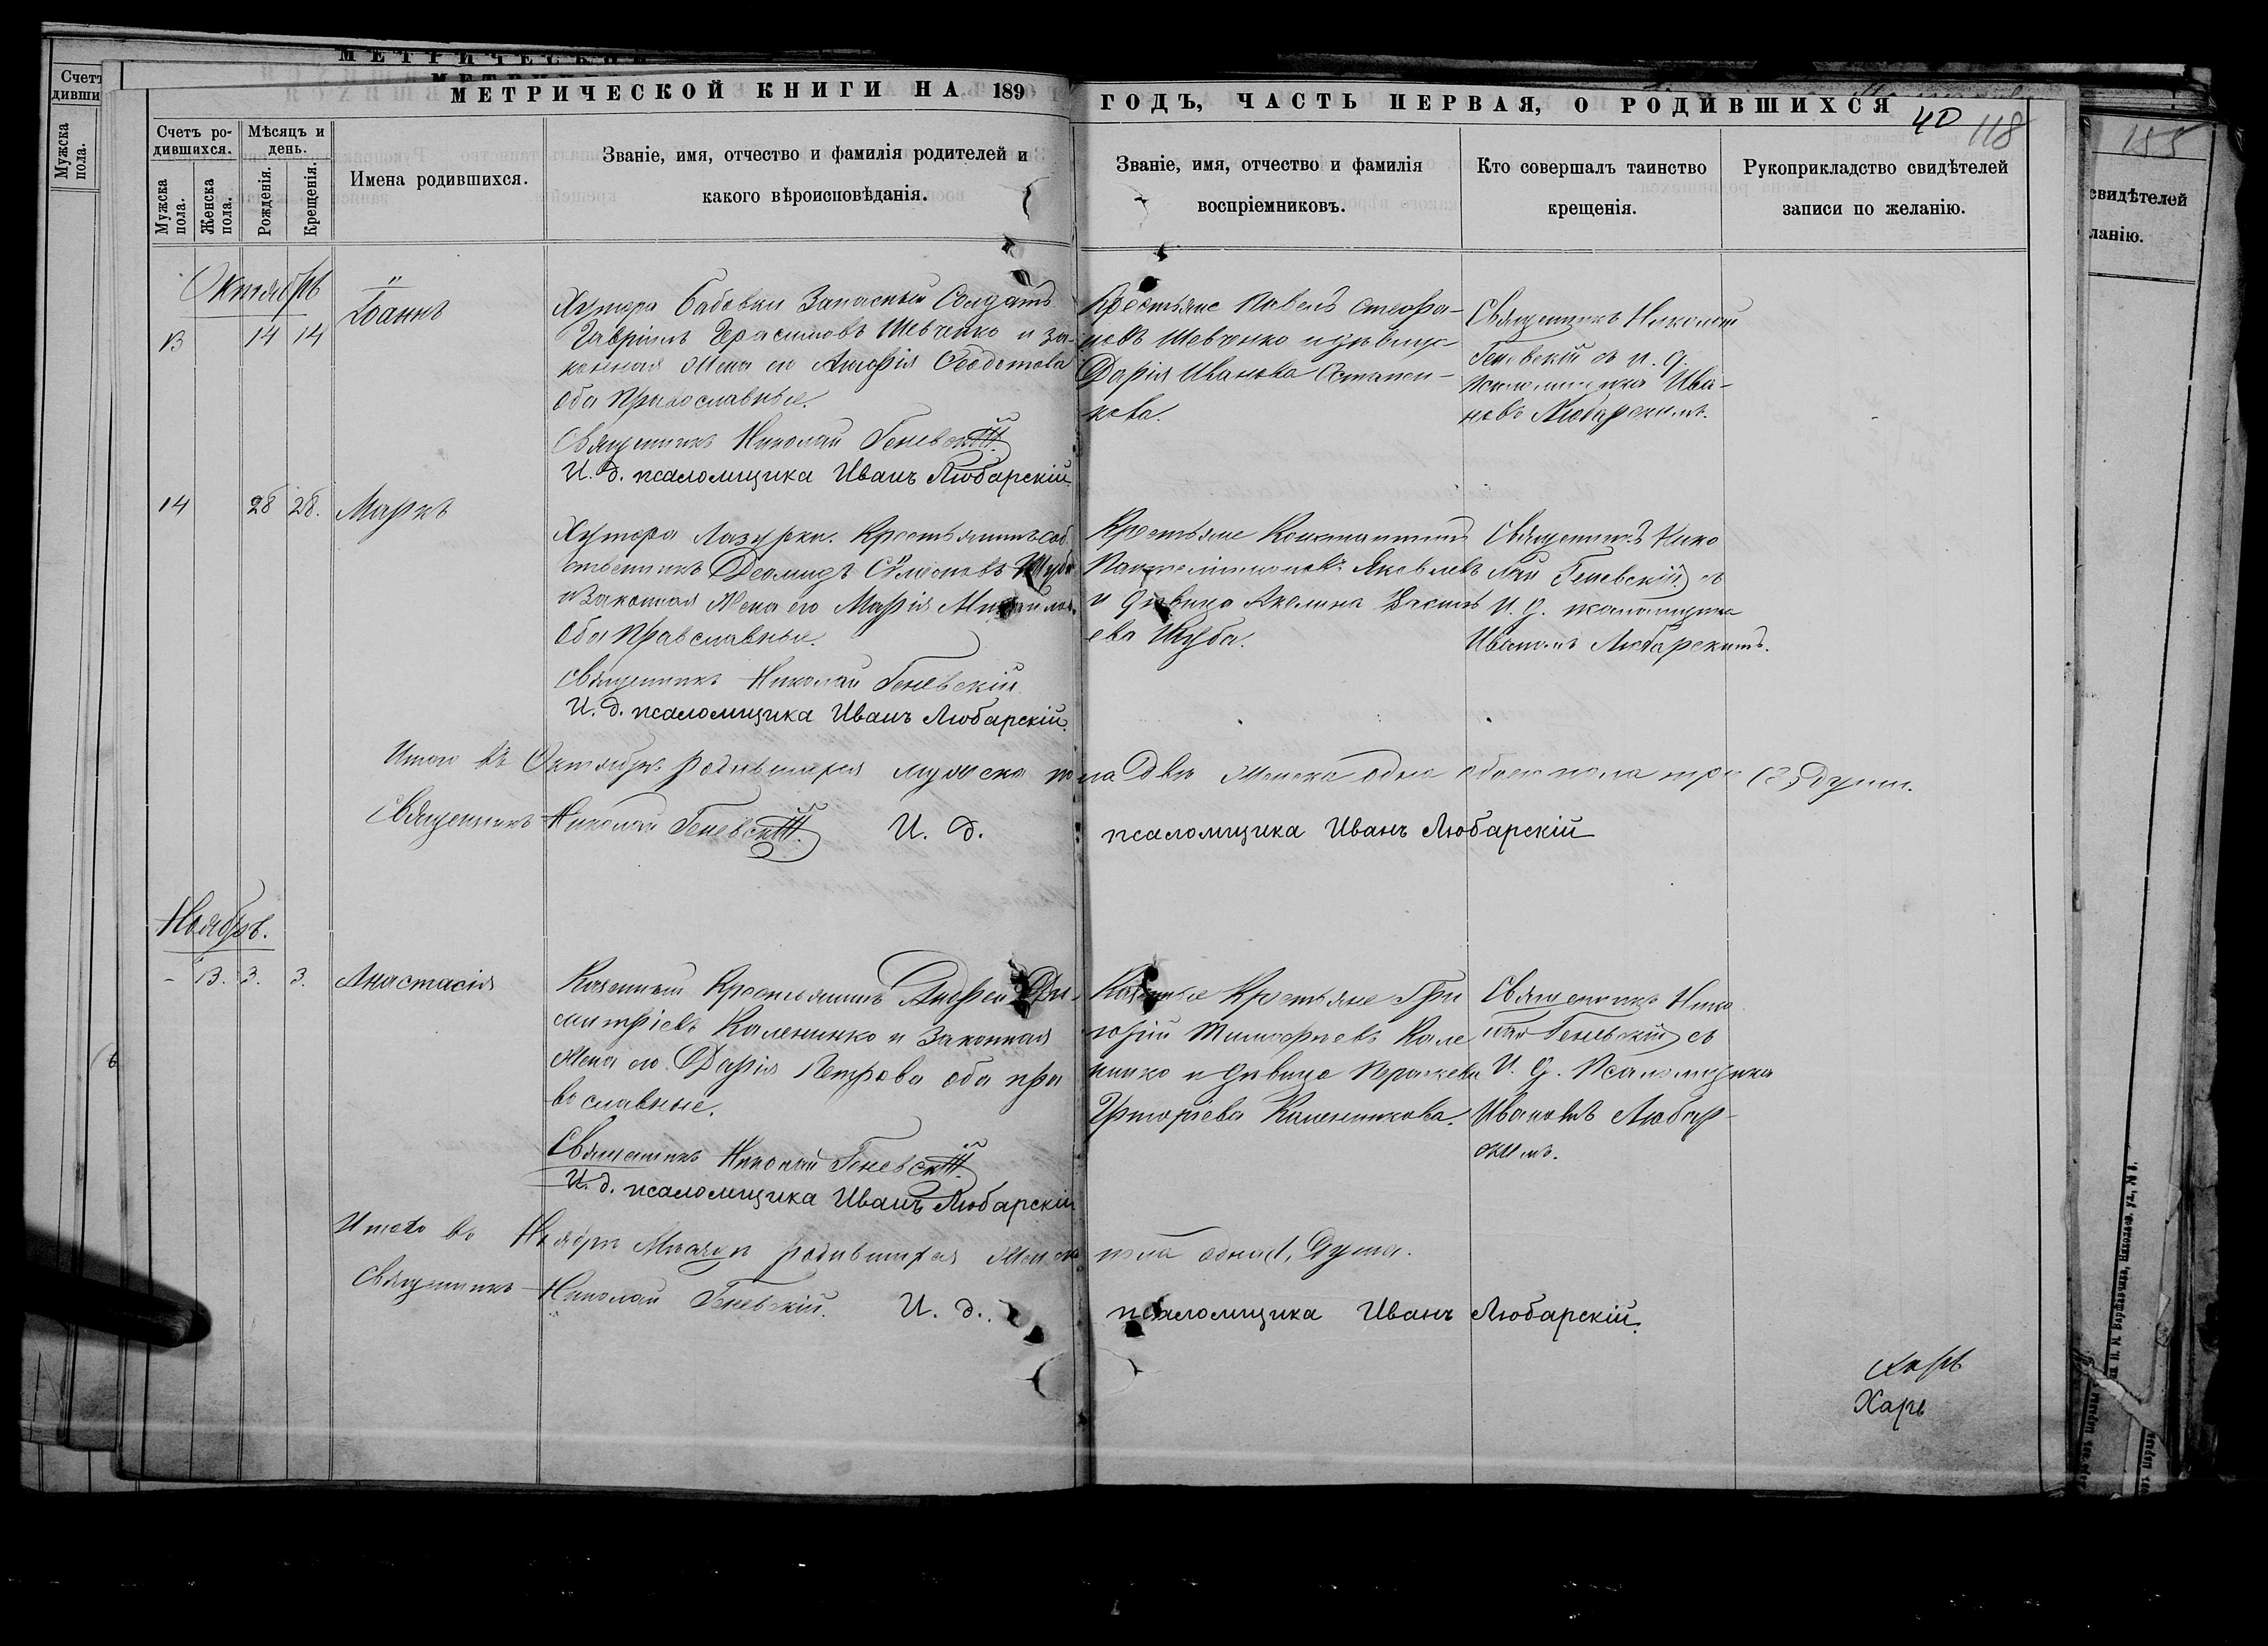 МЕТРИЧЕСКОЙ КНИГИ НА 189
ГОДЪ, ЧАСТЬ ПЕРВАЯ, О РОДИВШИХСЯ
40 118
Счетъ ро-
дившихся.
Мужска
пола.
Женска
пола.
Мѣсяцъ и
день.
Рожденія.
Крещенія.
Имена родившихся.
Званіе, имя, отчество и фамилія родителей и
какого вѣроисповѣданія.
Званіе, имя, отчество и фамилія
воспріемниковъ.
Кто совершалъ таинство
крещенія.
Рукоприкладство свидѣтелей
записи по желанію.
Октябрь
13 14 14
Іоаннъ
Хутора Бабовки Запасный Солдатъ
Гавріилъ Герасимовъ Шевченко и за-
конная жена его Агафія Ѳеодотова
оба православные.
Священникъ Николай Геневскій
И. д. псаломщика Иванъ Любарскій
Крестьяне Павелъ Стефа-
новъ Шевченко и дѣвица
Дарія Иванова Остапен-
кова.
Священникъ Николай
Геневскій съ и. д.
псаломщика Ива-
номъ Любарскимъ.
14 28 28.
Маркъ
Хутора Лазурки. Крестьянинъ соб
ственникъ Діомидъ Шуба
и Законная Жена его Марія
оба православные.
Священникъ Николай Геневскій
И. д. псаломщика Иванъ Любарскій.
Крестьяне Константинъ
Пантелеимоновъ Яковлевъ
и дѣвица Акелина
ева Шуба.
Священникъ Нико
лай Геневскій съ
И. д. псаломщика
Иваномъ Любарскимъ.
Итого въ Октябрѣ родившихся мужска пола два женска одна обоего пола три (3) души.
Священникъ Николай Геневскій И. д. псаломщика Иванъ Любарскій
Ноябрь.
- 13. 3. 3.
Анастасія
Казенный Крестьянинъ Андрей Ди-
митріевъ Каленикко и Законная
жена его Дарія Петрова оба пра
вославные.
Священникъ Николай Геневскій
И. д. псаломщика Иванъ Любарскій
Казенные Крестьяне Гри
горій Тимофѣевъ Кале
никко и дѣвица
Григоріева Каленикова.
Священникъ Нико
лай Геневскій съ
И. д. Псаломщика
Иваномъ Любар-
скимъ.
Итого въ Ноябрѣ Мѣсяцѣ родившихся Женска пола одна 1, Душа.
Священникъ Николай Геневскій. И. д. псаломщика Иванъ Любарскій.
Харь
Харь
155
свидѣтелей
ланію.